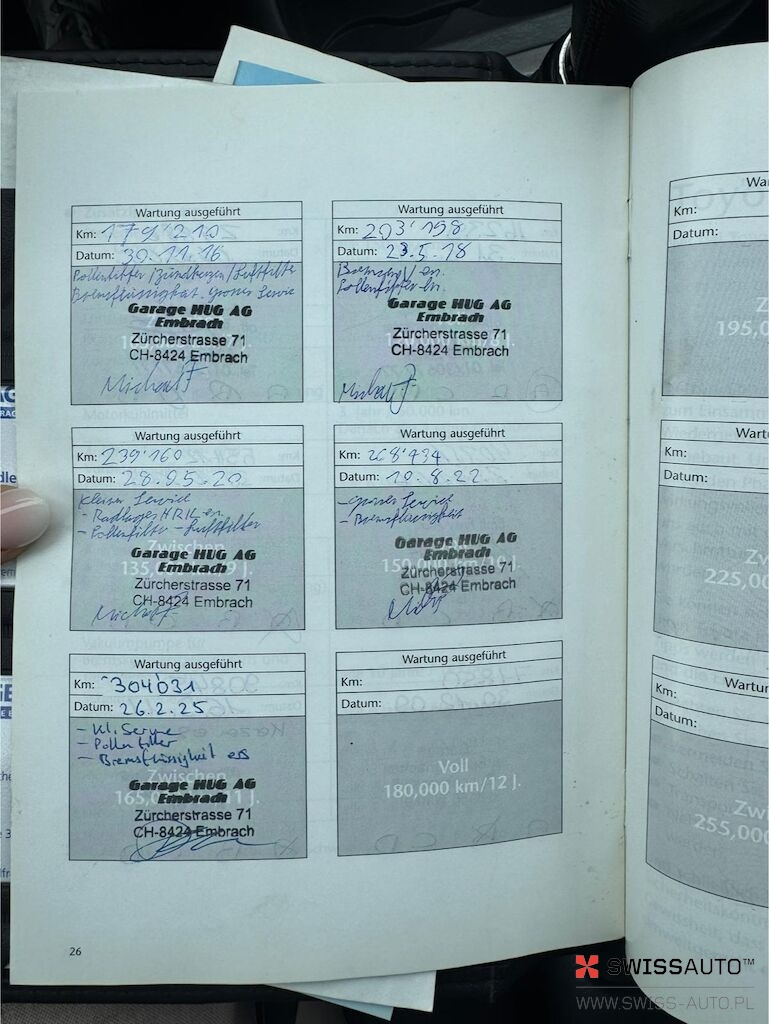 Wartung ausgeführt
Km: 179'210
Datum: 30.11.16
Pollenfilter/Zündkerzen/Luftfilter
Bremsflüssigkeit grosses Service
Garage HUG AG
Embrach
Zürcherstrasse 71
CH-8424 Embrach
Wartung ausgeführt
Km: 203'198
Datum: 23.5.18
Pollenfilter en.
Garage HUG AG
Embrach
Zürcherstrasse 71
CH-8424 Embrach
Wartung ausgeführt
Km: 239'160
Datum: 28.05.20
Kleiner Service
- Radlager HR/L en.
- Pollenfilter - Luftfilter
Garage HUG AG
Embrach
Zwischen
Zürcherstrasse 71
CH-8424 Embrach
Wartung ausgeführt
Km: 268'434
Datum: 10.8.22
- Grosses Service
- Bremsflüssigkeit
Garage HUG AG
Embrach
Zürcherstrasse 71
CH-8424 Embrach
Wartung ausgeführt
Km: 304'031
Datum: 26.2.25
- Kl. Service
- Pollenfilter
- Bremsflüssigkeit ers
Zwischen
Garage HUG AG
Embrach
Zürcherstrasse 71
CH-8424 Embrach
Wartung ausgeführt
Km:
Datum:
Voll
180,000 km/12 J.
26
Km:
Datum:
195,0
Km:
Datum:
225,00
Km:
Datum:
255,00
SWISSAUTO™
WWW.SWISS-AUTO.PL